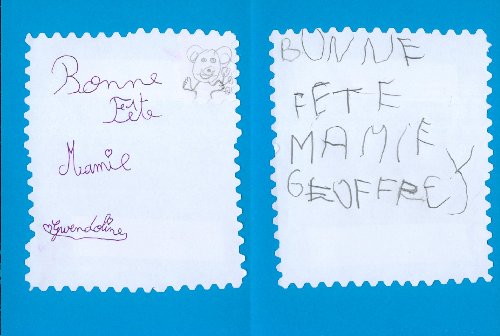 Bonne
Fête
Mamie
Gwendoline
BONNE
FETE
MAMIE
GEOFFREY